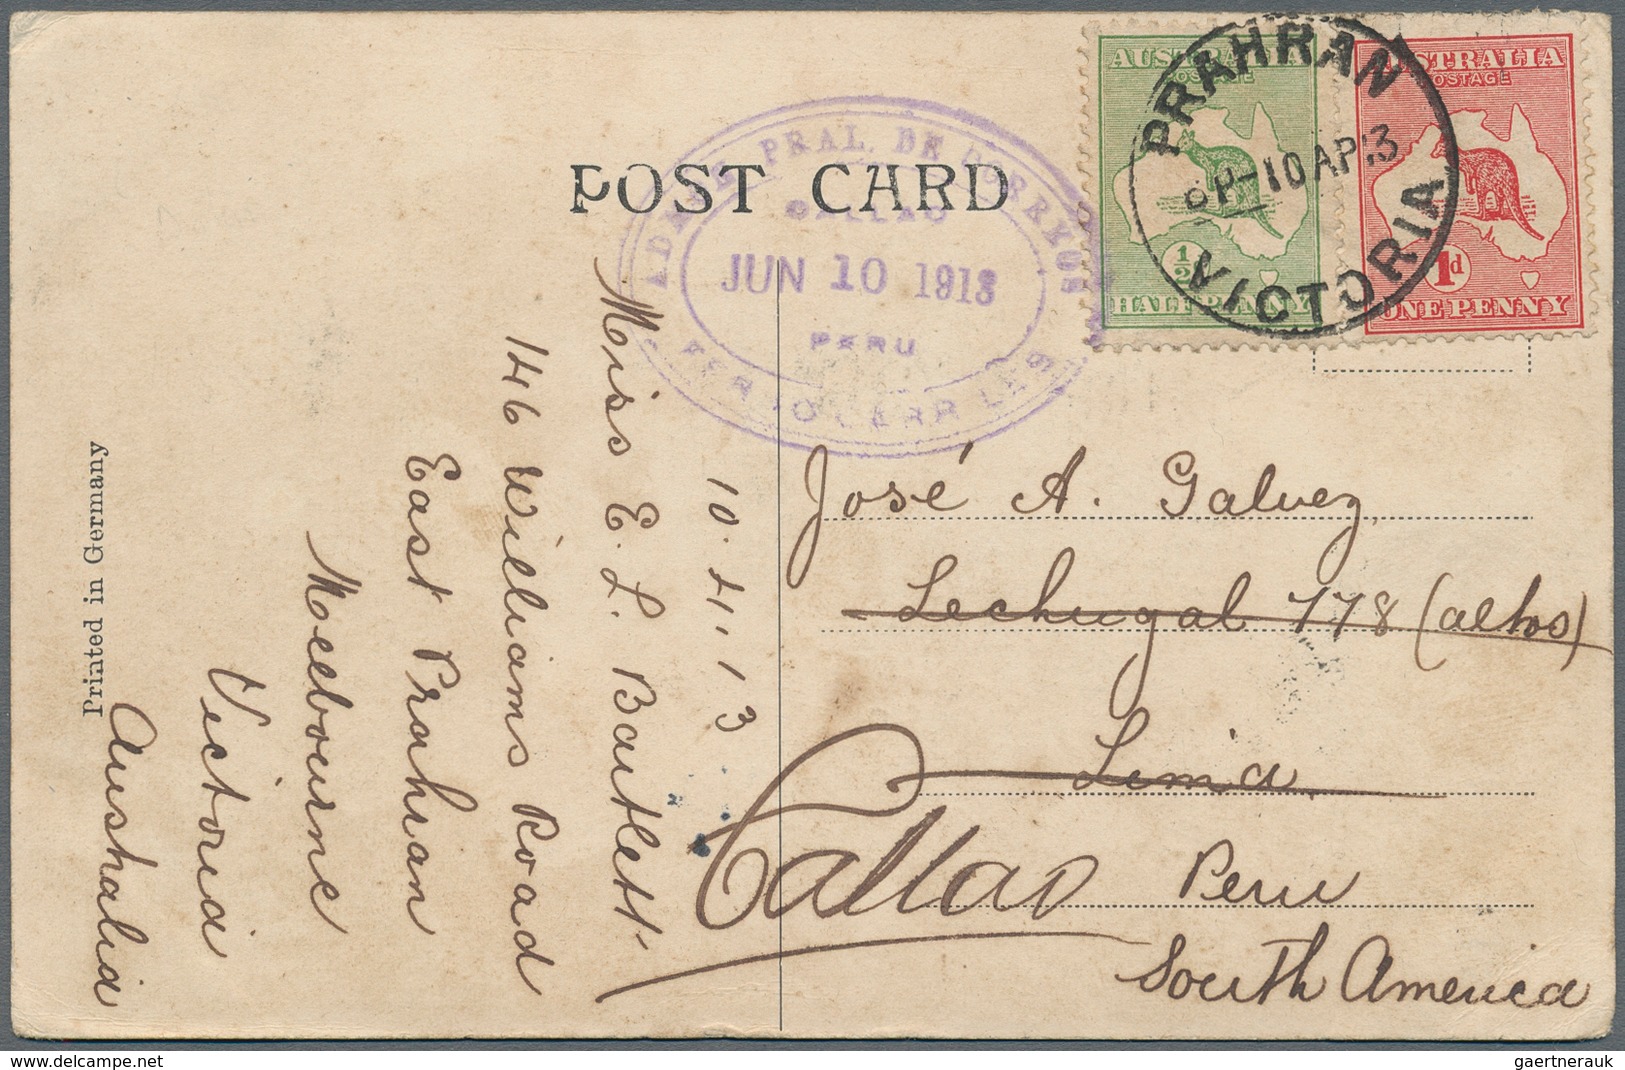 POST CARD
AUSTRALIA
POSTAGE
½
HALFPENNY
AUSTRALIA
POSTAGE
1d
ONE PENNY
PRAHRAN
8P-10 AP 13
VICTORIA
PRAL. DE CORREOS
CALLAO
JUN 10 1913
PERU
José A. Galvez,
Lechugal 778 (altos)
Lima
Callao
Peru
South America
10.4.13
Miss E. L. Bartlett
146 Williams Road
East Prahran
Melbourne
Victoria
Australia
Printed in Germany
gaertnerauk @ delcampe.net